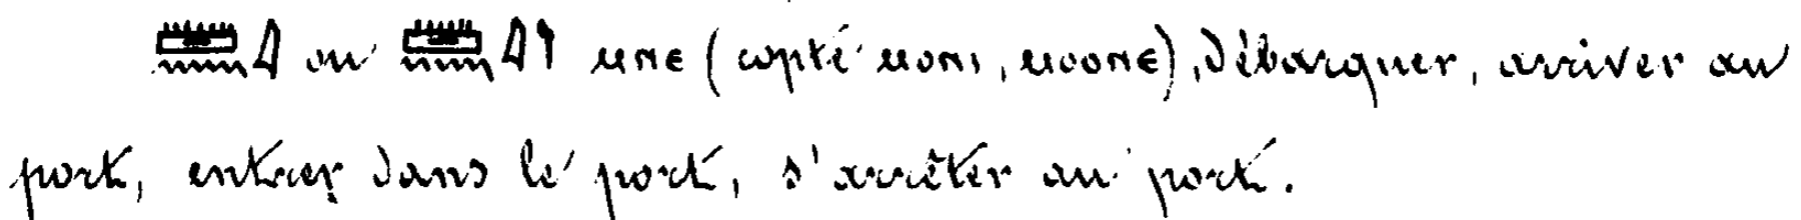 𓏠𓈖 ou 𓏠𓈖 ⲙⲛⲉ (copte ⲙⲟⲛⲓ, ⲙⲟⲟⲛⲉ), débarquer, arriver au
port, entrer dans le port, s'arrêter au port.